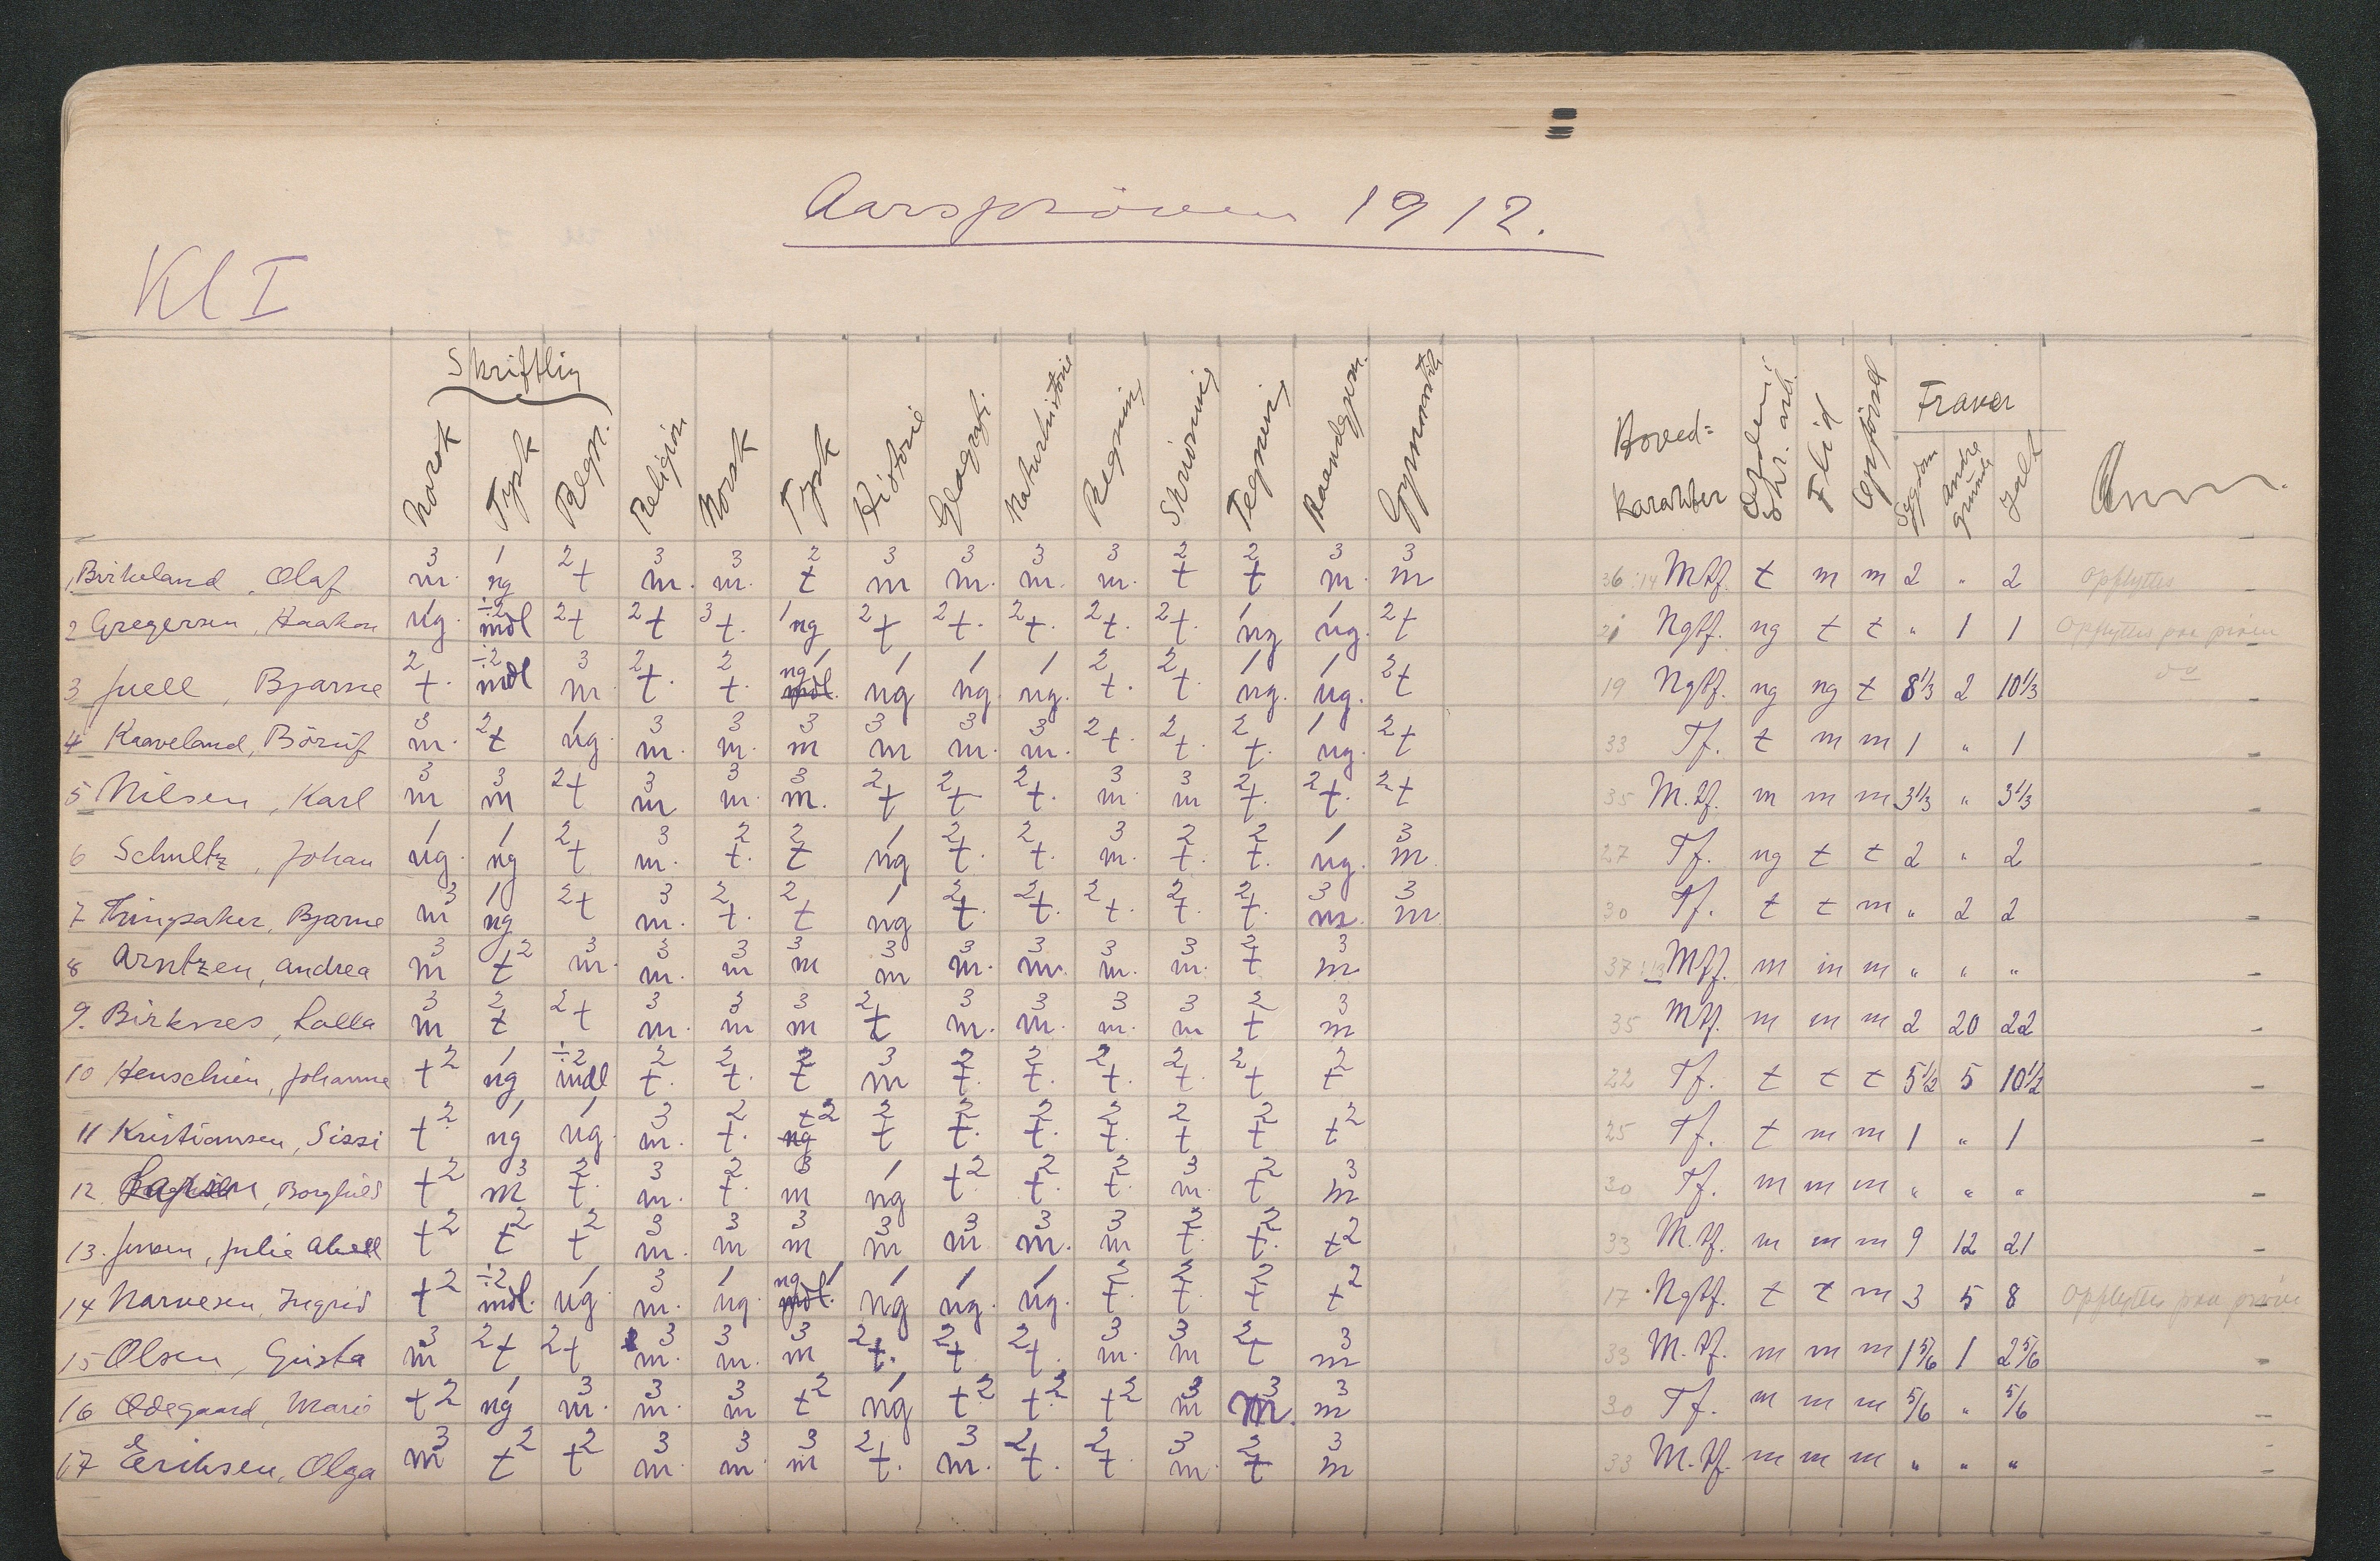 Aarspröven 1912.
Kl I
Skriftlig
Norsk Tysk Regn. Religion Norsk Tysk Historie Geografi. Naturhistorie Regning Skrivning Tegning Haandgjern. Gymnastik Hoved= karakter Orden i skr. arb. Flid Opförsel Fravær Sygdom andre grunde Ialt Anm.
1 Birkeland, Olaf 3 m. 1 ng 2 t 3 m. 3 m. 2 t 3 m 3 m. 3 m. 3 m. 2 t 2 t 3 m. 3 m 36:14 M.tf. t m m 2 " 2 Opflyttes
2 Gregersen, Haakon ng. ÷2 mdl 2 t 2 t 3 t. 1 ng 2 t 2 t. 2 t. 2 t. 2 t. 1 ng 1 ng. 2 t 21 Ngtf. ng t t " 1 1 Opflyttes paa pröve
3 Juell, Bjarne 2 t. ÷2 mdl 3 m 2 t. 2 t. ng 1 mdl. 1 ng 1 ng. 1 ng. 2 t. 2 t. 1 ng. 1 ng. 2 t 19 Ngtf. ng ng t 8 1/3 2 10 1/3 do
4 Kaaveland, Böruf 3 m. 2 t 1 ng. 3 m. 3 m. 3 m 3 m 3 m. 3 m. 2 t. 2 t. 2 t. 1 ng. 2 t 33 Tf. t m m 1 " 1
5 Nilsen, Karl 3 m 3 m 2 t 3 m 3 m. 3 m. 2 t 2 t 2 t. 3 m. 3 m 2 t. 2 t. 2 t 35 M.tf. m m m 3 1/3 " 3 1/3
6 Schultz, Johan 1 ng. 1 ng 2 t 3 m. 2 t. 2 t 1 ng 2 t. 2 t. 3 m. 2 t. 2 t. 1 ng. 3 m. 27 Tf. ng t t 2 " 2
7 Tringsaker, Bjarne 3 m 1 ng 2 t 3 m. 2 t. 2 t 1 ng 2 t. 2 t. 2 t. 2 t. 2 t. 3 m. 3 m. 30 Tf. t t m " 2 2
8 Arntzen, Andrea 3 m t2 3 m. 3 m. 3 m 3 m 3 m 3 m. 3 m. 3 m. 3 m. 2 t 3 m 37:13 M.tf. m m m " " "
9. Birknes, Lalla 3 m 2 t 2 t 3 m. 3 m 3 m 2 t 3 m. 3 m. 3 m. 3 m 2 t 3 m 35 M.tf. m m m 2 20 22
10 Henschien, Johanne t2 1 ng ÷2 mdl 2 t. 2 t. 2 t 3 m 2 t. 2 t. 2 t. 2 t. 2 t 2 t 22 Tf. t t t 5 1/2 5 10 1/2
11 Kristiansen, Sissi t2 1 ng 1 ng. 3 m. 2 t. t2 ng 2 t 2 t. 2 t. 2 t. 2 t 2 t t2 25 Tf. t m m 1 " 1
12. Borghild t2 3 m 2 t. 3 m. 2 t. 3 m 1 ng t2 2 t. 2 t. 3 m. 2 t 3 m 30 Tf. m m m " " "
13. Jensen, Julie Abell t2 t2 t2 3 m. 3 m 3 m 3 m 3 m 3 m. 3 m 2 t. 2 t. t2 33 M.tf. m m m 9 12 21
14 Narvesen, Ingrid t2 ÷2 mdl. 1 ng. 3 m. 1 ng. ng 1 mdl. 1 ng 1 ng. 1 ng. 2 t. 2 t. 2 t t2 17 Ngtf. t t m 3 5 8 Opflyttes paa pröve
15 Olsen, Gusta 3 m 2 t 2 t 3 m. 3 m. 3 m 2 t. 2 t 2 t. 3 m. 3 m 2 t 3 m 33 M.tf. m m m 1 5/6 1 2 5/6
16 Ödegaard, Marie t2 1 ng 3 m. 3 m. 3 m t2 1 ng t2 t2 t2 3 m 3 m. 3 m 30 Tf. m m m 5/6 " 5/6
17 Eriksen, Olga 3 m t2 t2 3 m. 3 m. 3 m 2 t. 3 m. 2 t. 2 t. 3 m. 2 t 3 m 33 M.tf. m m m " " "